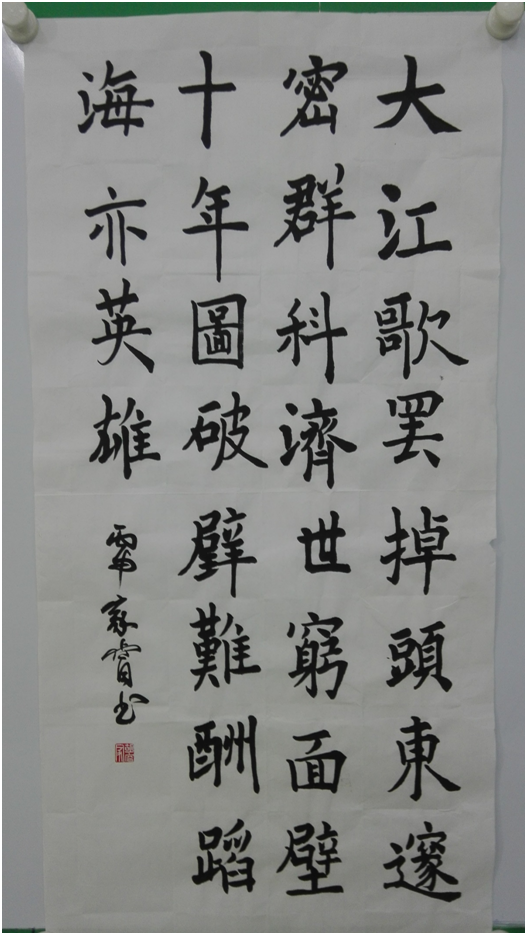 大江歌罢掉頭東邃
密群科濟世窮面壁
十年圖破壁難酬蹈
海亦英雄
家睿书